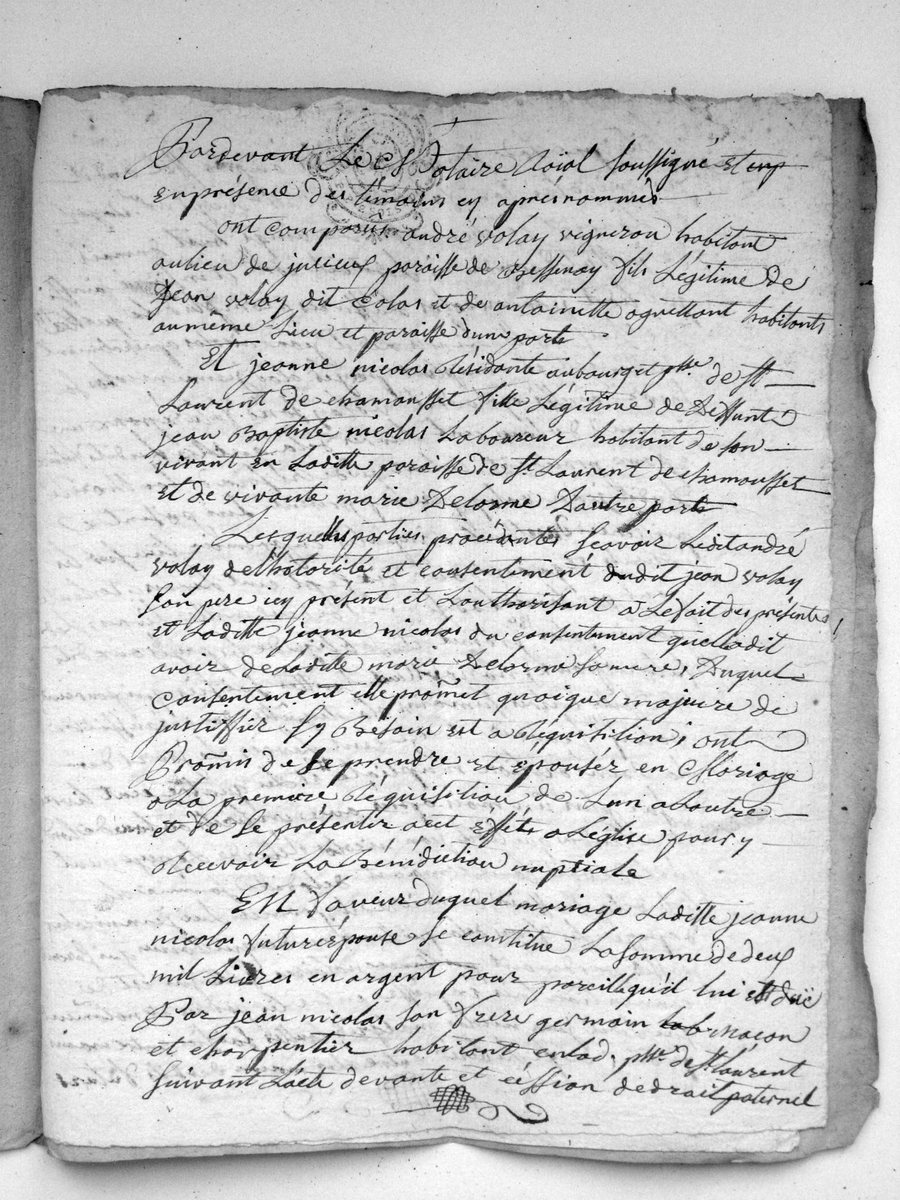 Pardevant Le Notaire Roial soussigné Et en
En présence des témoins cy apres nommés
ont comparus andré volay vigneron habitant
au lieu de jurieux paroisse de Bessenay fils Légitime de
Jean volay dit Colas et de antoinette habitants
au même Lieu et paroisse d'une parte
Et jeanne nicolas Résidante au bourg et psse. de st
Laurent de chamousset fille Légitime de deffunt
jean Baptiste nicolas Laboureur habitant de son
vivant En Laditte paroisse de st Laurent de chamousset
Et de vivante marie Delorme D'autre parte
Lesquelles parties procédantes scavoir Ledit andré
volay de l'hotorité et consentement dudit jean volay
son pere icy présent et L'authorisant a L'efait des présentes
et Laditte jeanne nicolas du consentement quelle dit
avoir de Laditte marie Delorme sa mere, Duquel
Consentement elle promet quoique majeure de
justiffier sy Besoin est a Réquisition, ont
Promis de se prendre et épouser en Mariage
a La premiere Réquisition de L'un a L'autre
et de se présenter a cet Effets a L'église pour y
Recevoir La Bénédiction nuptiale
EN faveur duquel mariage Laditte jeanne
nicolas future épouse se constitue La somme de deux
mil Livres en argent pour pareille qu'il lui est düe
Par jean nicolas son frere germain macon
et charpentier habitant en lad. psse. de st Laurent
suivant L'acte de vante et cession de droit paternel